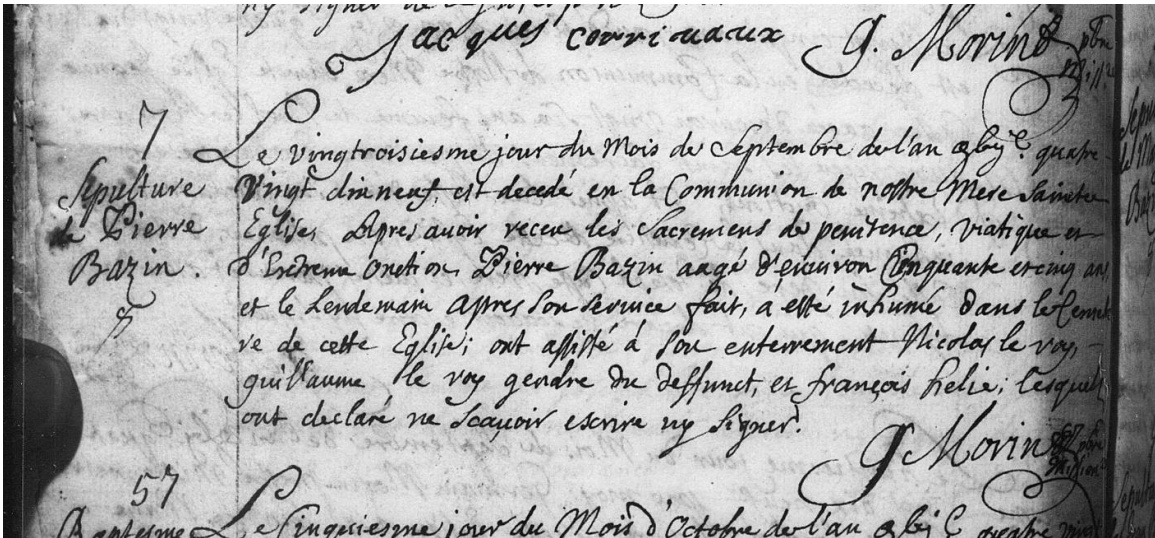 Jacques corriuaux G. Morin pbre
miss.re
7
Sepulture
de Pierre
Bazin.
Le vingtroisiesme jour du Mois de Septembre de l'an quatre
Vingt dix neuf, est decedé en la Communion de nostre Mere Saincte
Eglise, Apres auoir receu les Sacremens de penitence, viatique et
d'Extreme onction, Pierre Bazin aagé d'enuiron Cinquante et cinq ans
et le Lendemain apres son seruice fait, á esté inhumé dans le Cemetie
re de cette Eglise; ont assisté á son enterrement Nicolas le roy,
guillaume le roy gendre du deffunct, et françois helie; lesquels
ont declaré ne scauoir escrire ny signer.
G. Morin pbre
mission.
57
Baptesme
Le Cinquiesme jour du Mois d'Octobre de l'an quatre vint